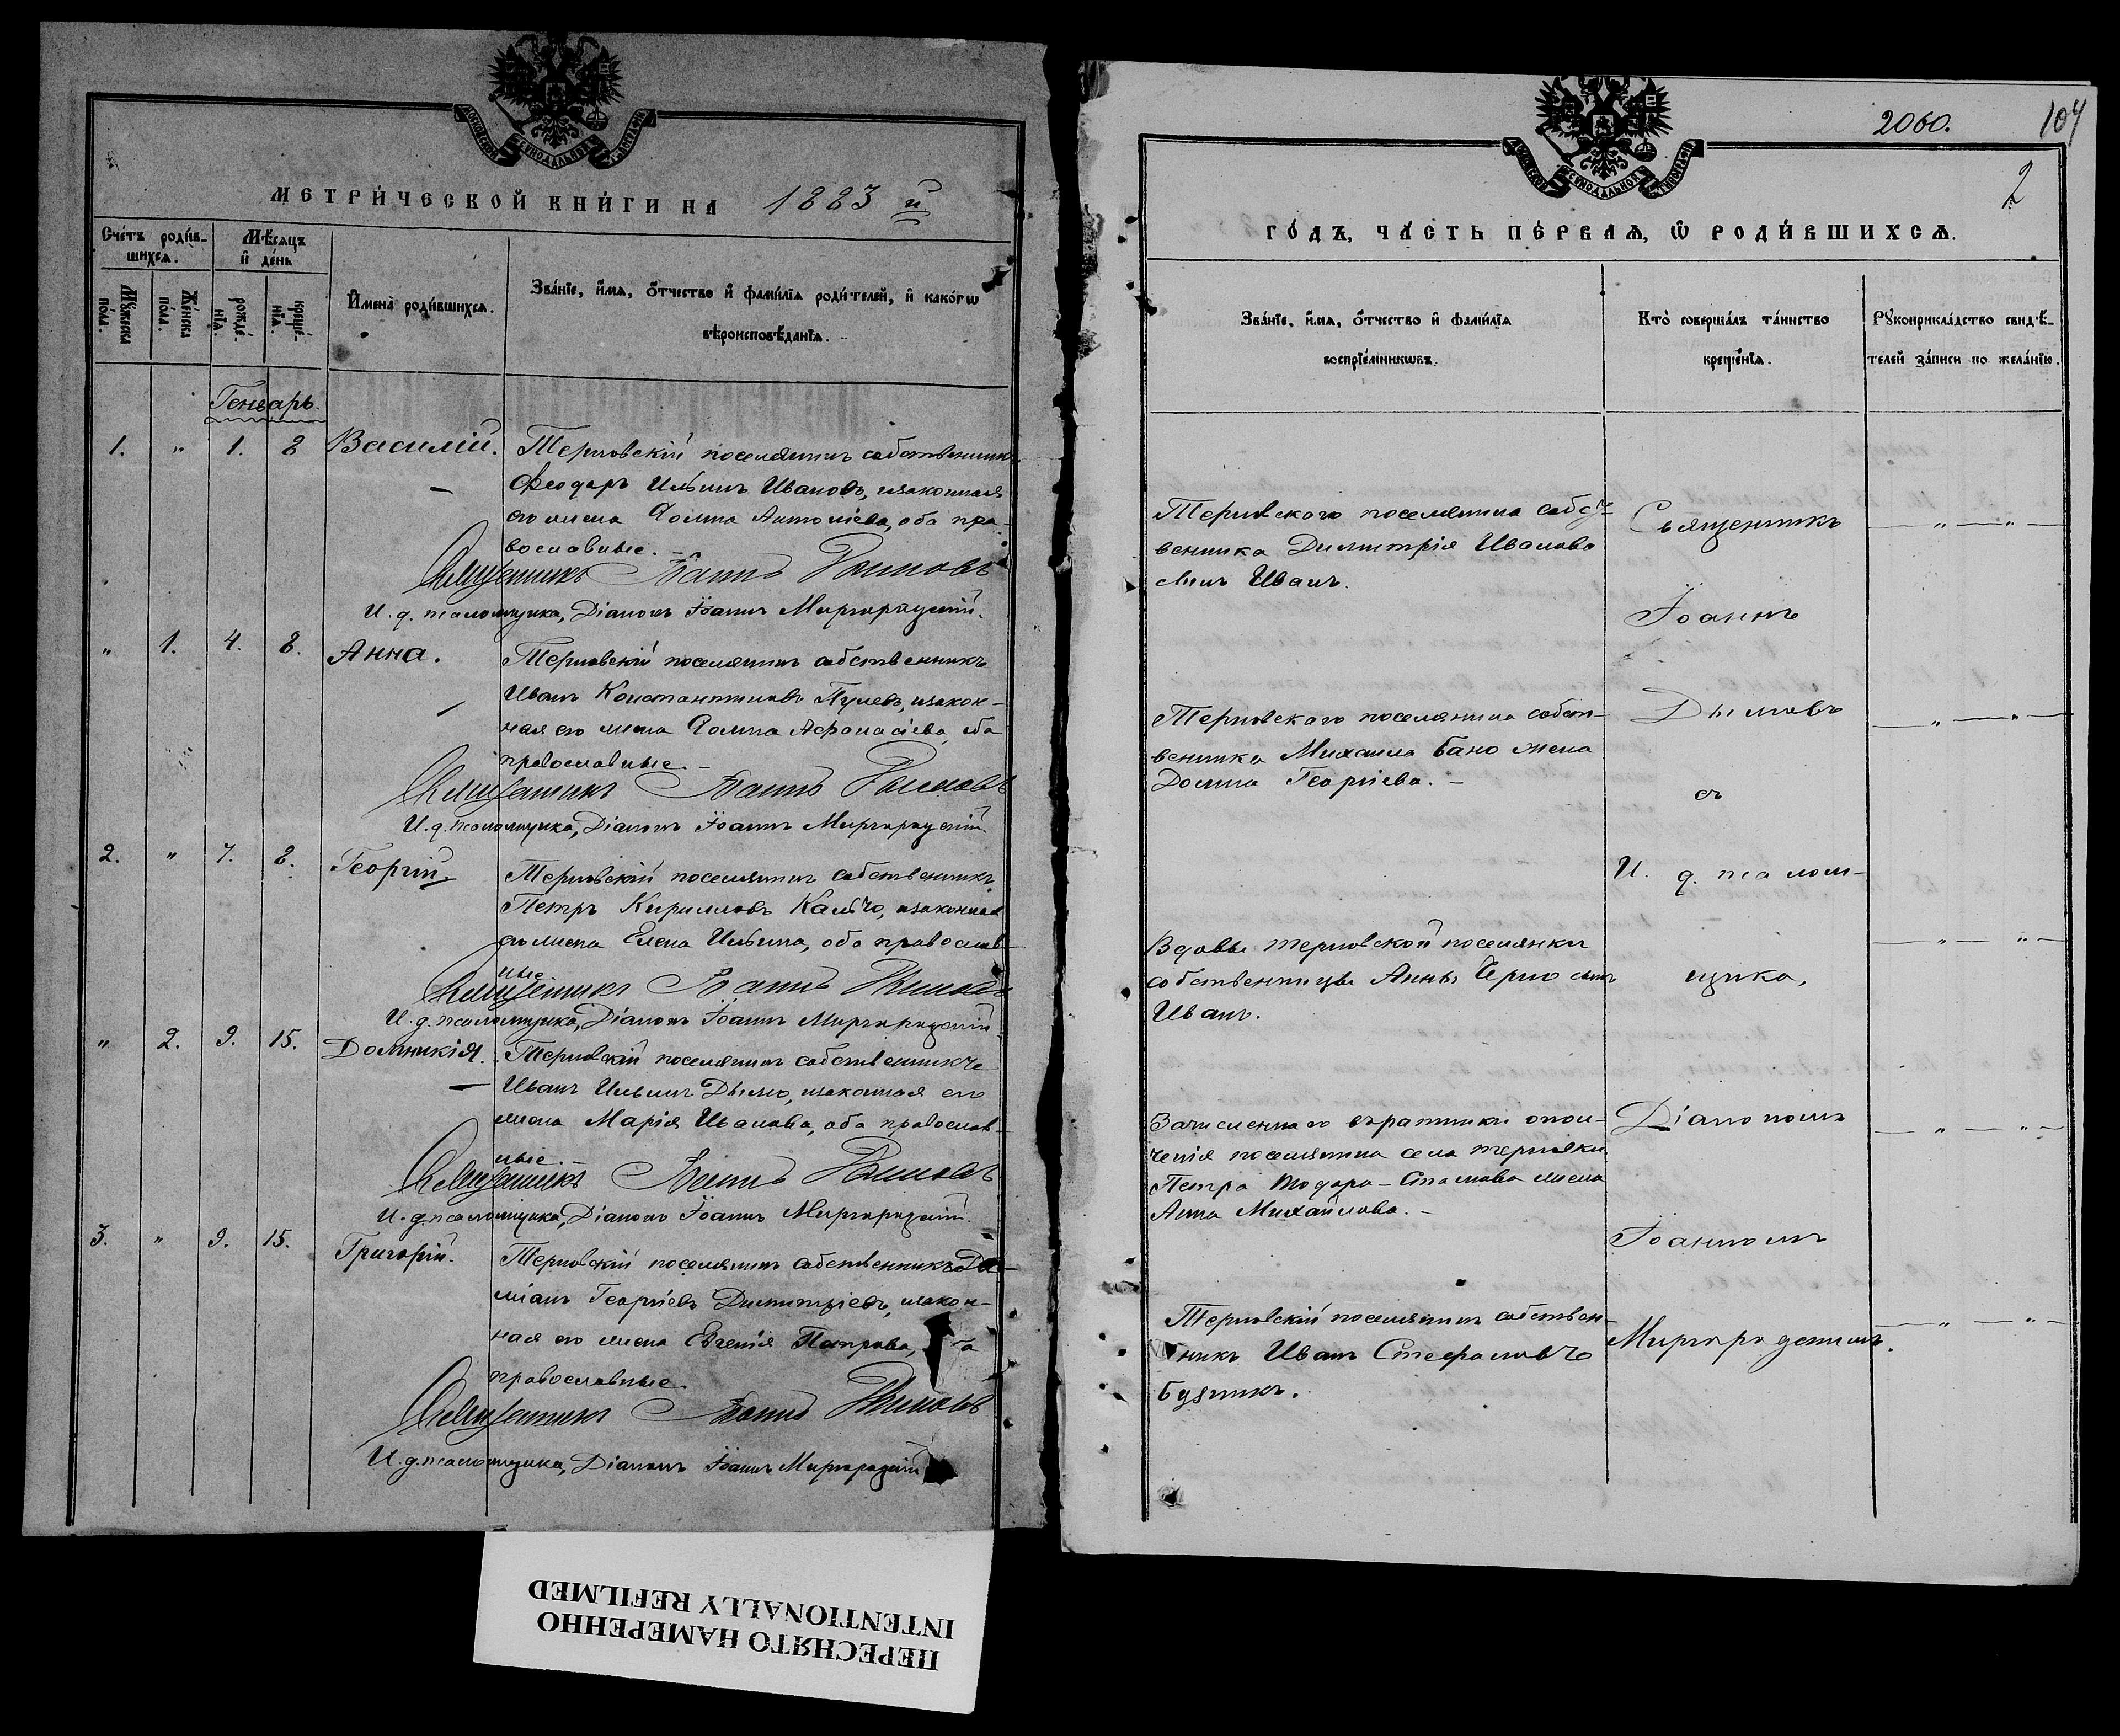 МЕТРИ́ЧЕСКОЙ КНИ́ГИ НА 1883 й
Сче́тъ роди́в-
шихся.
Мѣ́сяцъ
и҆ де́нь
Мꙋ́жеска
по́ла.
Же́нска
по́ла.
рожде́-
нїѧ.
креще́-
нїѧ.
И҆мена̀ роди́вшихсѧ.
Зва́нїе, и҆́мѧ, ѻ҆́тчество и҆ фамі́лїѧ роди́телей, и҆ како́гѡ
вѣроисповѣ́данїѧ.
Генварь.
1. " 1. 8 Василій. Терновскій поселянинъ собственникъ
Ѳеодоръ Ильинъ Ивановъ, изаконная
его жена Домна Антоніева, оба пра-
вославные.
Священникъ Іоаннъ Дымовъ
И. д. псаломщика, Діаконъ Іоаннъ Миргородскій.
" 1. 4. 8. Анна. Терновскій поселянинъ собственникъ
Иванъ Константиновъ Пулевъ, изакон-
ная его жена Домна Аѳонасіева, оба
православные.
Священникъ Іоаннъ Дымовъ
И. д. псаломщика, Діаконъ Іоаннъ Миргородскій.
2. " 7. 8. Георгій Терновскій поселянинъ собственникъ
Петръ Кирилловъ Кальчо, изаконная
его жена Елена Ильина, оба православ-
ные
Священникъ Іоаннъ Дымовъ
И. д. псаломщика, Діаконъ Іоаннъ Миргородскій.
" 2. 9. 15. Домникія. Терновскій поселянинъ собственникъ
Иванъ Ильинъ Дымо, изаконная его
жена Марія Иванова, оба православ-
ные
Священникъ Іоаннъ Дымовъ
И. д. псаломщика, Діаконъ Іоаннъ Миргородскій.
3. " 9. 15. Григорій. Терновскій поселянинъ собственникъ Да-
міанъ Георгіевъ Димитріевъ, изакон-
ная его жена Евгенія Петрова,
православные.
Священникъ Іоаннъ Дымовъ
И. д. псаломщика, Діаконъ Іоаннъ Миргородскій
ПЕРЕСНЯТО НАМЕРЕННО
INTENTIONALLY REFILMED
2060. 104
2
ГО́ДЪ, ЧА́СТЬ ПЕ́РВАѦ, Ѡ҆ РОДИ́ВШИХСѦ.
Зва́нїе, и҆́мѧ, ѻ҆́тчество и҆ фамі́лїѧ
воспрїе́мникѡвъ.
Кто̀ соверша́лъ та́инство
креще́нїѧ.
Рꙋкоприкла́дство свидѣ́-
телей за́писи по жела́нїю.
Терновского поселянина собст-
венника Димитрія Иванова
сынъ Иванъ.
Терновского поселянина собст-
венника Михаила Бано жена
Домна Георгіева.
Вдовы терновской поселянки
собственницы Анны Черно сынъ
Иванъ.
Зачисленного въратники опол-
ченія поселянина села терновки
Петра Тодора-Стамова жена
Анна Михайлова.
Терновскій поселянинъ собствен-
никъ Иванъ Стефановъ
Будникъ.
Священникъ
Іоаннъ
Дымовъ
съ
И. д. псалом-
щика,
Діакономъ
Іоанномъ
Миргородскимъ.